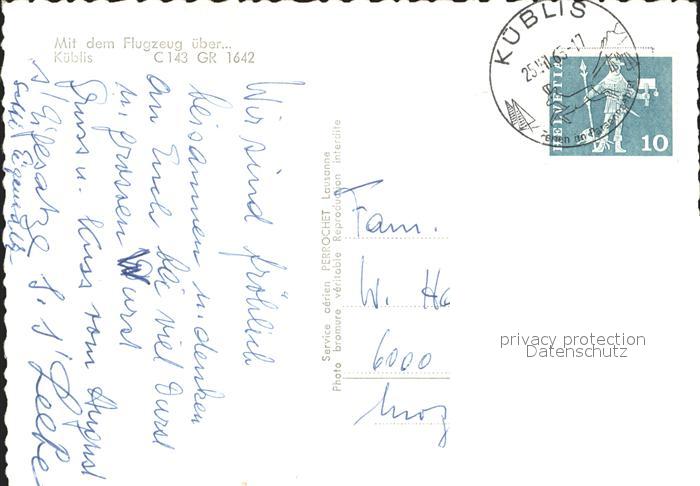 Mit dem Flugzeug über...
Küblis C 143 GR 1642
Wir sind fröhlich
beisammen u. denken
an Euch bei viel Durst
u. grossen Wurst
Gruss u. Kuss vom August
Service aérien PERROCHET Lausanne
Photo bromure véritable Reproduction interdite
KÜBLIS
HELVETIA
10
Fam.
W. Ha
6000
privacy protection
Datenschutz